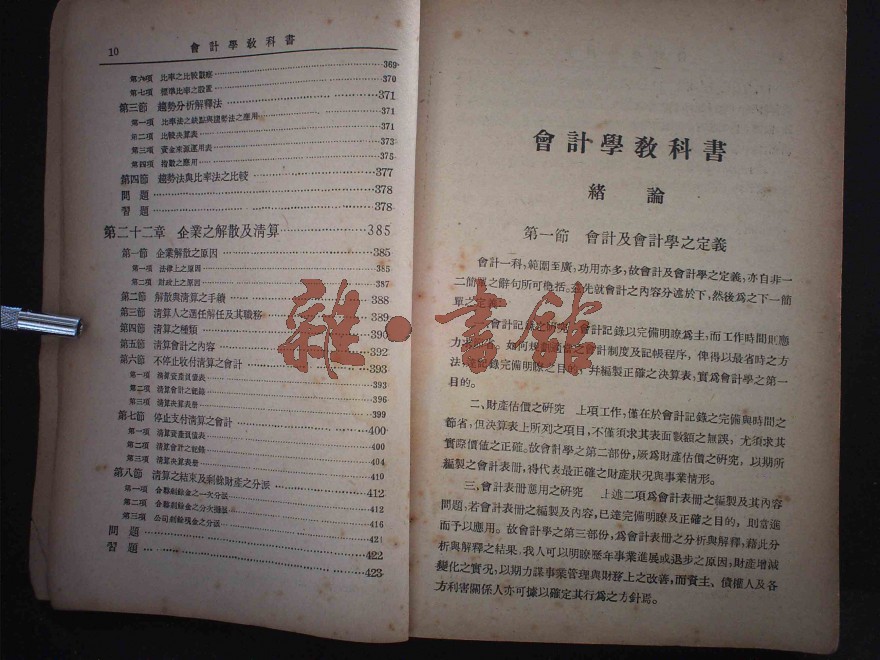 10 會計學教科書
369
第六項 比率之比較觀察 370
第七項 標準比率之設置 371
第三節 趨勢分析解釋法 371
第一項 比率法之缺點與趨勢法之應用 371
第二項 比較決算表 373
第三項 資金來源運用表 375
第四項 指數之應用 377
第四節 趨勢法與比率法之比較 378
問題 378
習題
第二十二章 企業之解散及清算 385
第一節 企業解散之原因 385
第一項 法律上之原因 385
第二項 財政上之原因 387
第二節 解散與清算之手續 388
第三節 清算人之選任解任及其職務 389
第四節 清算之種類 390
第五節 清算會計之內容 392
第六節 不停止收付清算之會計 393
第一項 清算資產負債表 393
第二項 清算會計之記錄 396
第三項 清算決算表冊 399
第七節 停止支付清算之會計 400
第一項 清算資產負債表 400
第二項 清算會計之記錄 404
第三項 清算決算表冊 410
第八節 清算之結束及剩餘財產之分派 412
第一項 合夥剩餘金之一次分派 412
第二項 合夥剩餘金之分次攤還 416
第三項 公司剩餘現金之分派 421
問題 422
習題 423
會計學教科書
緒論
第一節 會計及會計學之定義
會計一科,範圍至廣,功用亦多,故會計及會計學之定義,亦自非一
二簡單之辭句所可概括。先就會計之內容分述於下,然後爲之下一簡
單之定義。
會計記錄之研究 會計記錄以完備明瞭爲主,而工作時間則應
力求節省。如何規定適當之會計制度及記帳程序,俾得以最省時之方
法,達記錄完備明瞭之目的,并編製正確之決算表,實爲會計學之第一
目的。
二、財產估價之研究 上項工作,僅在於會計記錄之完備與時間之
節省,但決算表上所列之項目,不僅須求其表面數額之無誤,尤須求其
實際價值之正確。故會計學之第二部份,厥爲財產估價之研究,以期所
編製之會計表冊,得代表最正確之財產狀況與事業情形。
三、會計表冊應用之研究 上述二項爲會計表冊之編製及其內容
問題,若會計表冊之編製及內容,已達完備明瞭及正確之目的,則當進
而予以應用。故會計學之第三部份,爲會計表冊之分析與解釋,藉此分
析與解釋之結果,我人可以明瞭歷年事業進展或退步之原因,財產增減
變化之實況,以期力謀事業管理與財務上之改善,而資主、債權人及各
方利害關係人亦可據以確定其行爲之方針焉。
雜·書館